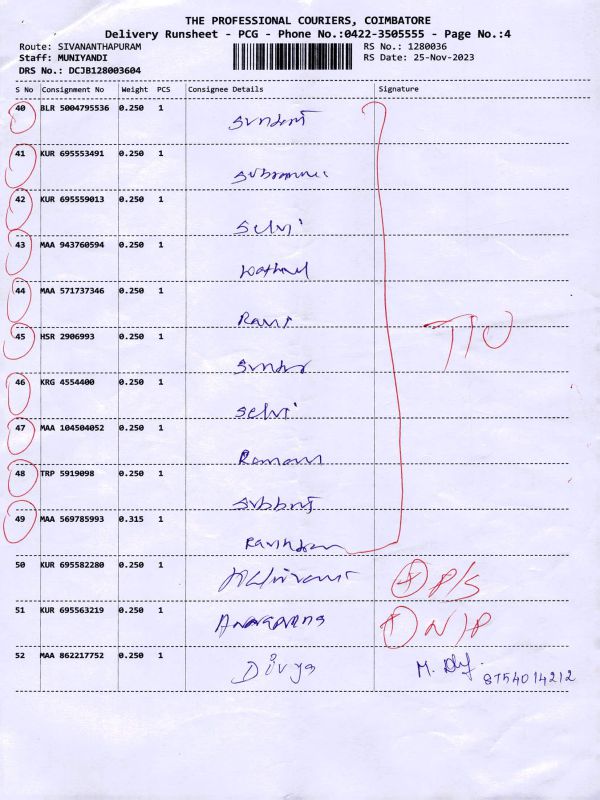 THE PROFESSIONAL COURIERS, COIMBATORE
Delivery Runsheet - PCG - Phone No.:0422-3505555 - Page No.:4
Route: SIVANANTHAPURAM RS No.: 1280036
Staff: MUNIYANDI RS Date: 25-Nov-2023
DRS No.: DCJB128003604
S No Consignment No Weight PCS Consignee Details Signature
40 BLR 5004795536 0.250 1
41 KUR 695553491 0.250 1
42 KUR 695559013 0.250 1
Selvi
43 MAA 943760594 0.250 1
44 MAA 571737346 0.250 1
Ravi
45 HSR 2906993 0.250 1
46 KRG 4554400 0.250 1
Selvi
47 MAA 104504052 0.250 1
48 TRP 5919098 0.250 1
49 MAA 569785993 0.315 1
50 KUR 695582280 0.250 1
P/S
51 KUR 695563219 0.250 1
N/P
52 MAA 862217752 0.250 1
Divya M. 8754014212